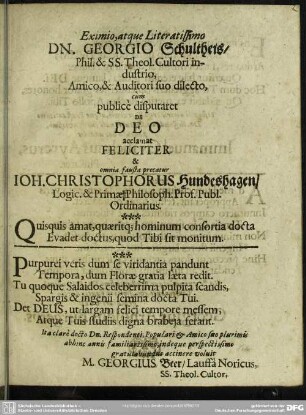 Eximio, atque Literatissimo
DN. GEORGIO Schultheis/
Phil. & SS. Theol. Cultori in-
dustrio,
Amico & Auditori suo dilecto,
cum
publicè disputaret
DEO
acclamat
FELICITER
&
omnia fausta precatur
IOH. CHRISTOPHORUS Hundeshagen/
Logic. & Primæ Philosoph. Prof. Publ.
Ordinarius.
***
Quisquis amat, quæritq; hominum consortia docta
Evadet doctus, quod Tibi sit monitum.
***
Purpurei veris dum se viridantia pandunt
Tempora, dum Floræ gratia læta redit.
Tu quoque Salaidos celeberrima pulpita scandis,
Spargis & ingenii semina docta Tui.
Det DEUS, ut largam felici tempore messem,
Atque Tuis studiis digna brabeja ferant.
Ita clarè docto Dn. Respondenti, Populari & Amico suo plurimis
abhinc annis familiarissimo, indeque perspectissimo
gratulabundus accinere voluit
M. GEORGIUS Beer/ Lauffâ Noricus,
SS. Theol. Cultor.